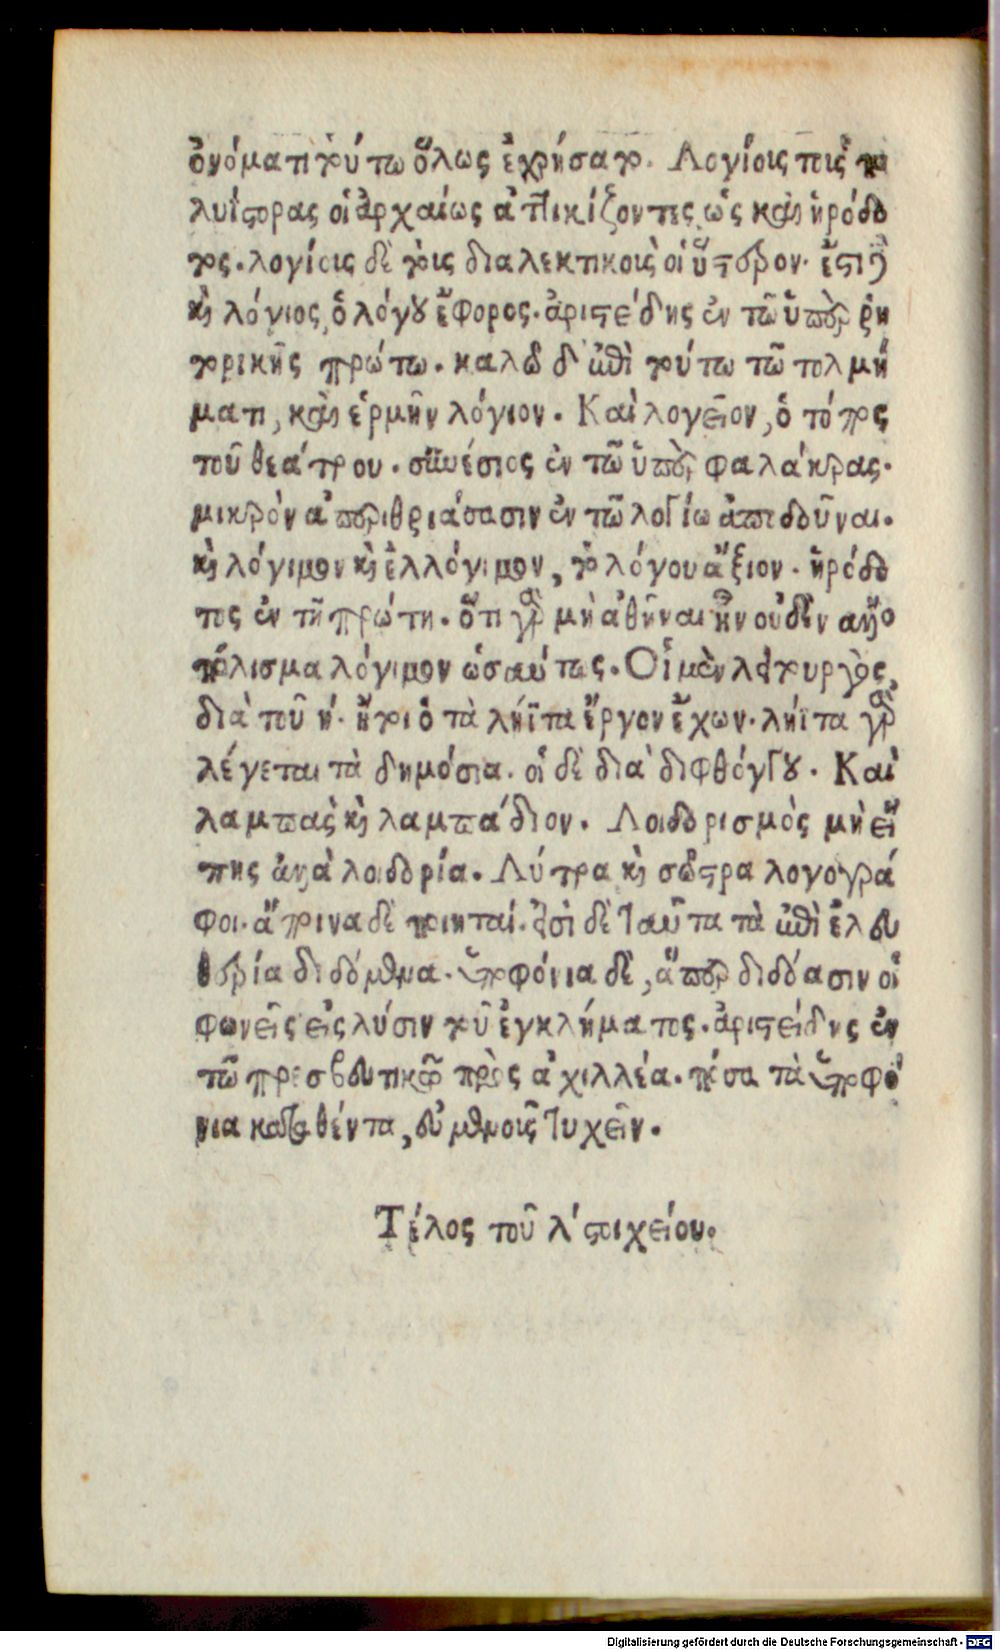 ὀνόματι τούτω ὅλως ἐχρήσατο. Λογίοις τοὺς πο
λυΐστορας οἱ ἀρχαίως ἀττικίζοντες, ὡς καὶ ἡρόδο
τος. λογίοις δὲ τοῖς διαλεκτικοῖς οἱ ὕστερον. ἔστι δὲ
καὶ λόγιος, ὁ λόγου ἔφορος. ἀριστείδης ἐν τῶ ὑπὲρ ῥη
τορικῆς πρώτω. καλῶ δ' ἐπὶ τούτω τῶ τολμή
ματι, καὶ ἑρμῆν λόγιον. Καὶ λογεῖον, ὁ τόπος
τοῦ θεάτρου. συνέσιος ἐν τῶ ὑπὲρ φαλάκρας.
μικρὸν ἅπερ θριάσασιν ἐν τῶ λογίω ἀποδοῦναι.
καὶ λόγιμον καὶ ἐλλόγιμον, τὸ λόγου ἄξιον. ἡρόδο
τος ἐν τῆ πρώτη. ὅτι γὰρ μὴ ἀθῆναι ἦν οὐδὲν ἄλλο
πόλισμα λόγιμον ὡσαύτως. Οἱ μὲν λῃτουργὸς,
διὰ τοῦ ή. ἤτοι ὁ τὰ λήϊτα ἔργον ἔχων. λήϊτα γὰρ
λέγεται τὰ δημόσια. οἱ δὲ διὰ διφθόγγου. Καὶ
λαμπὰς καὶ λαμπάδιον. Λοιδορισμὸς μὴ εἴ
πης ἀλλὰ λοιδορία. Λύτρα καὶ σῶστρα λογογρά
φοι. ἄποινα δὲ ποιηταί. ἐστὶ δὲ ταῦτα τὰ ἐπὶ ἐλευ
θερία διδόμενα. ὑποφόνια δὲ, ἅπερ διδόασιν οἱ
φονεῖς εἰς λύσιν τοῦ ἐγκλήματος. ἀριστείδης ἐν
τῶ πρεσβευτικῶ πρὸς ἀχιλλέα. πέσα τὰ ὑποφό
νια καταθέντα, εὐμενοῖς τυχεῖν.
Τέλος τοῦ λ' στοιχείου.
Digitalisierung gefördert durch die Deutsche Forschungsgemeinschaft - DFG